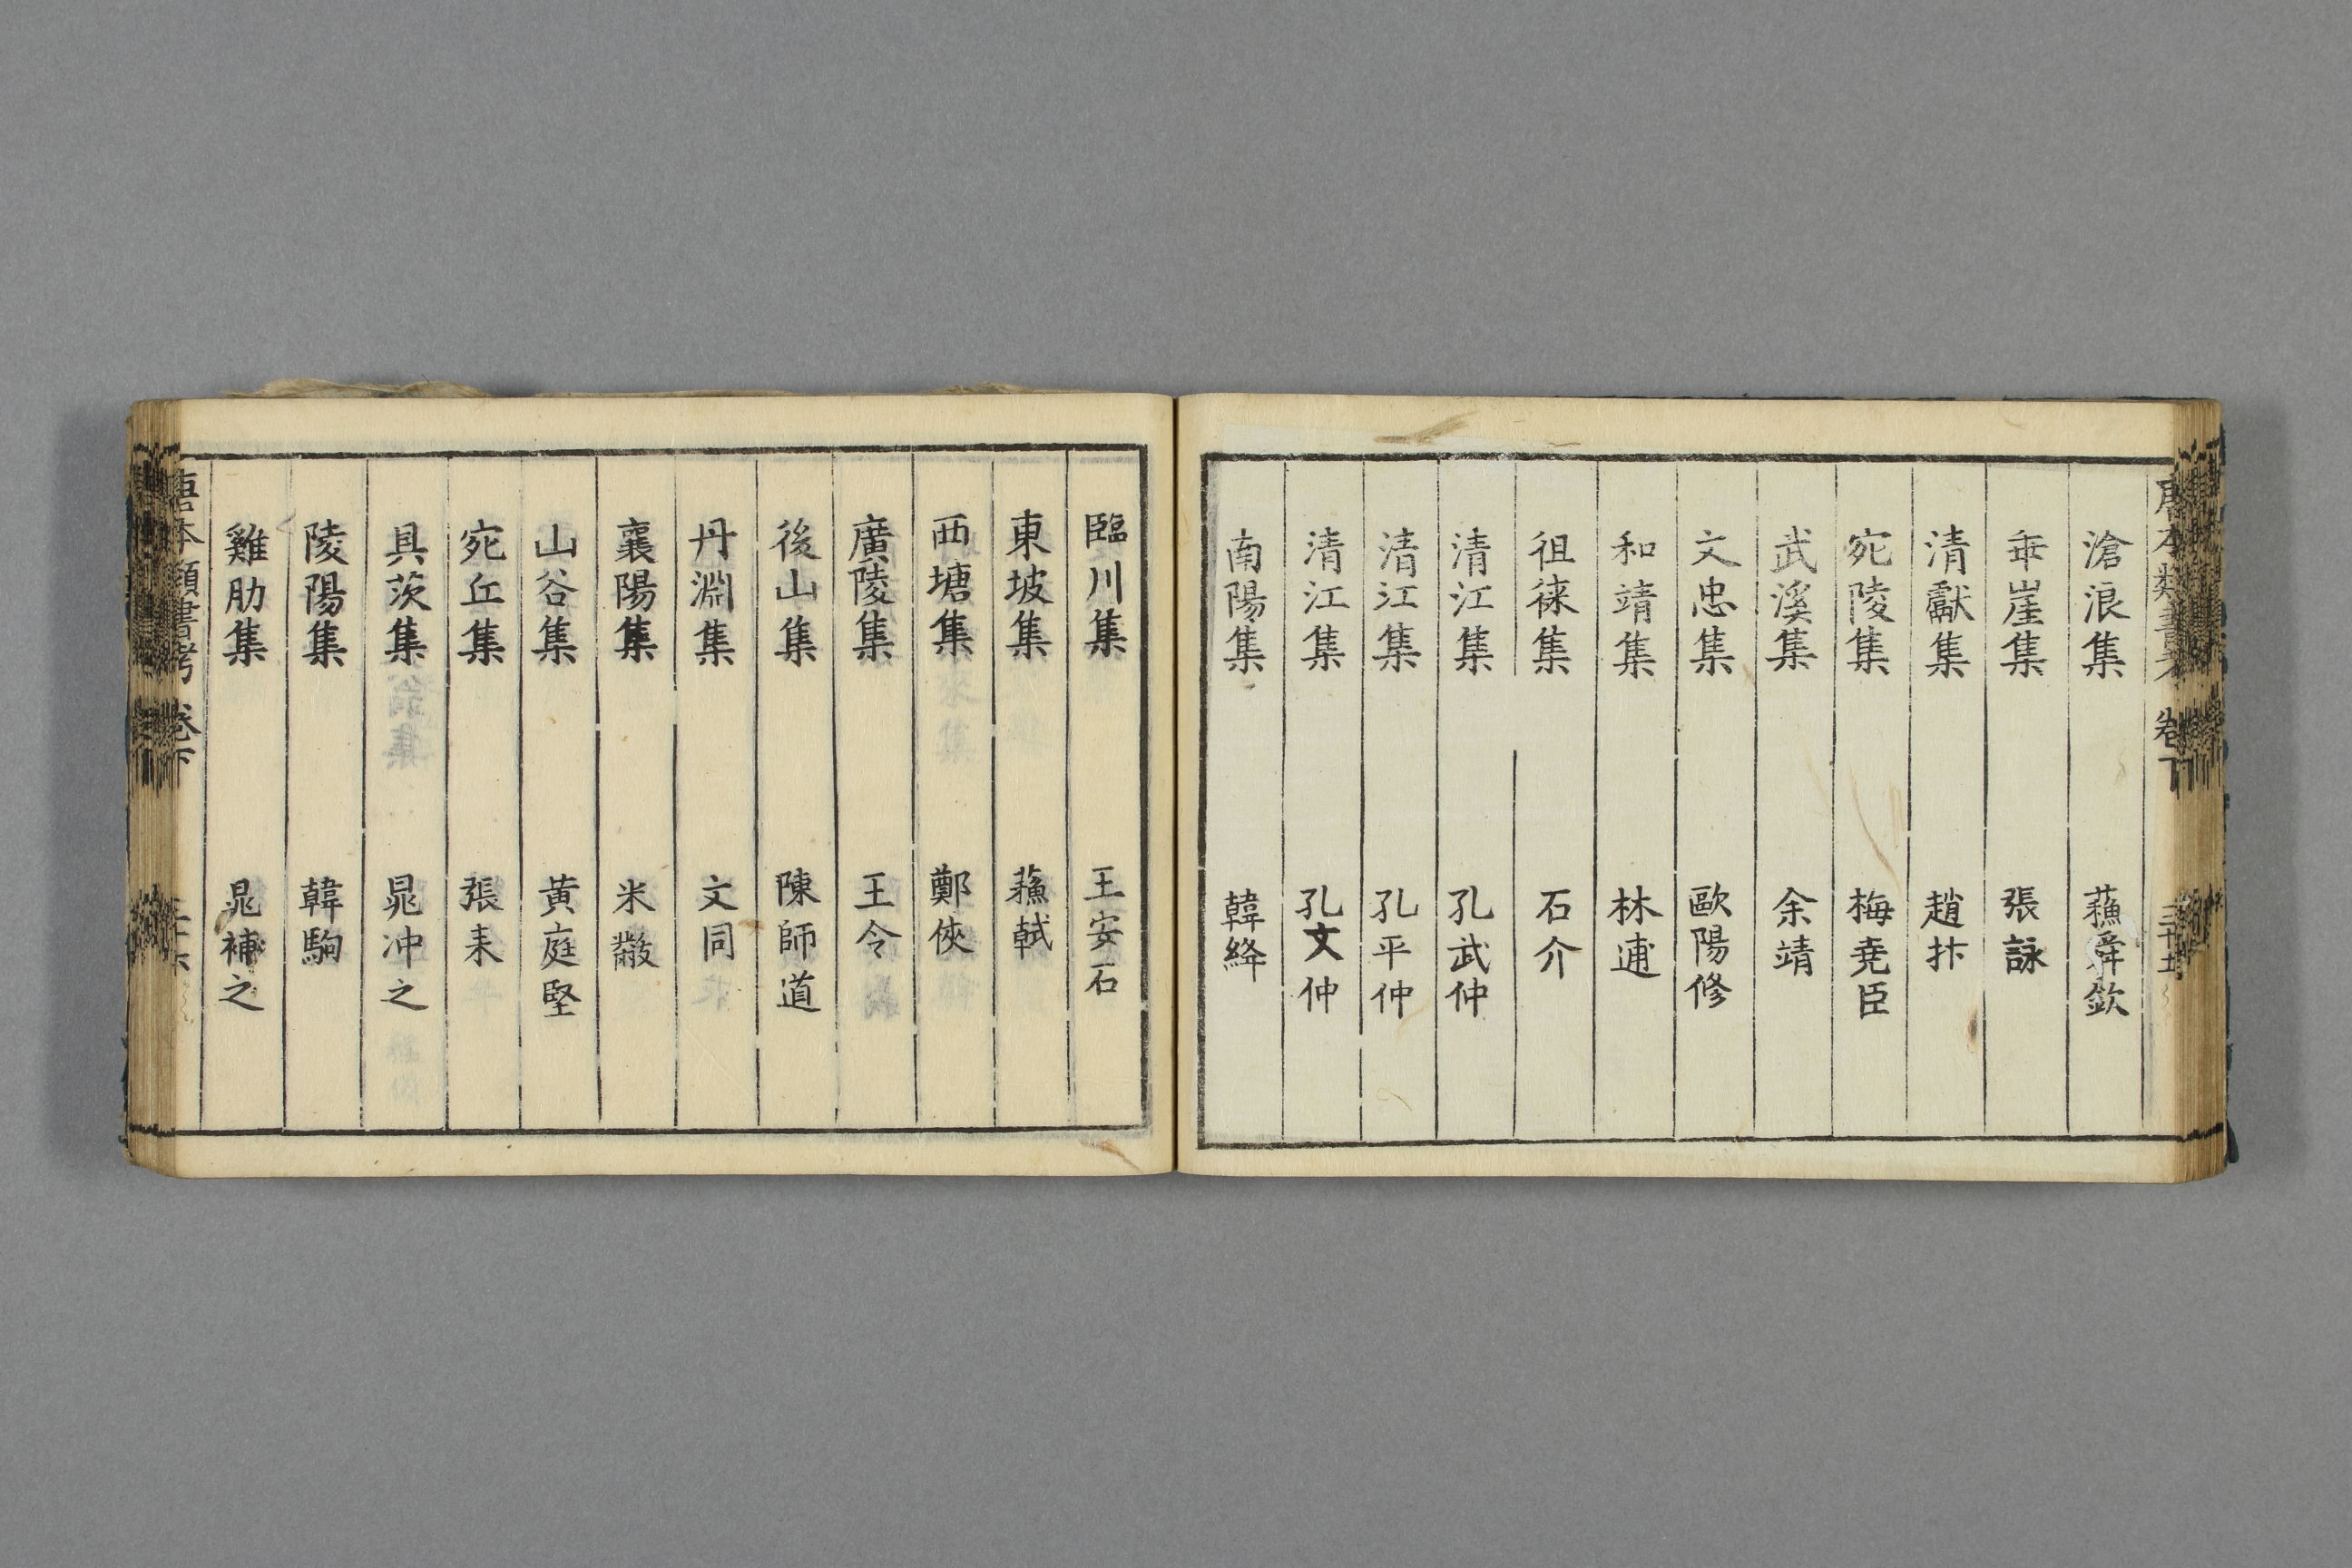 唐本類書考 卷下
滄浪集 蘓舜欽
乖崖集 張詠
清獻集 趙抃
宛陵集 梅堯臣
武溪集 余靖
文忠集 歐陽修
和靖集 林逋
徂徠集 石介
清江集 孔武仲
清江集 孔平仲
清江集 孔文仲
南陽集 韓絳
臨川集 王安石
東坡集 蘓軾
西塘集 鄭俠
廣陵集 王令
後山集 陳師道
丹淵集 文同
襄陽集 米黻
山谷集 黄庭堅
宛丘集 張耒
具茨集 晁冲之
陵陽集 韓駒
雞肋集 晁補之
唐本類書考 卷下